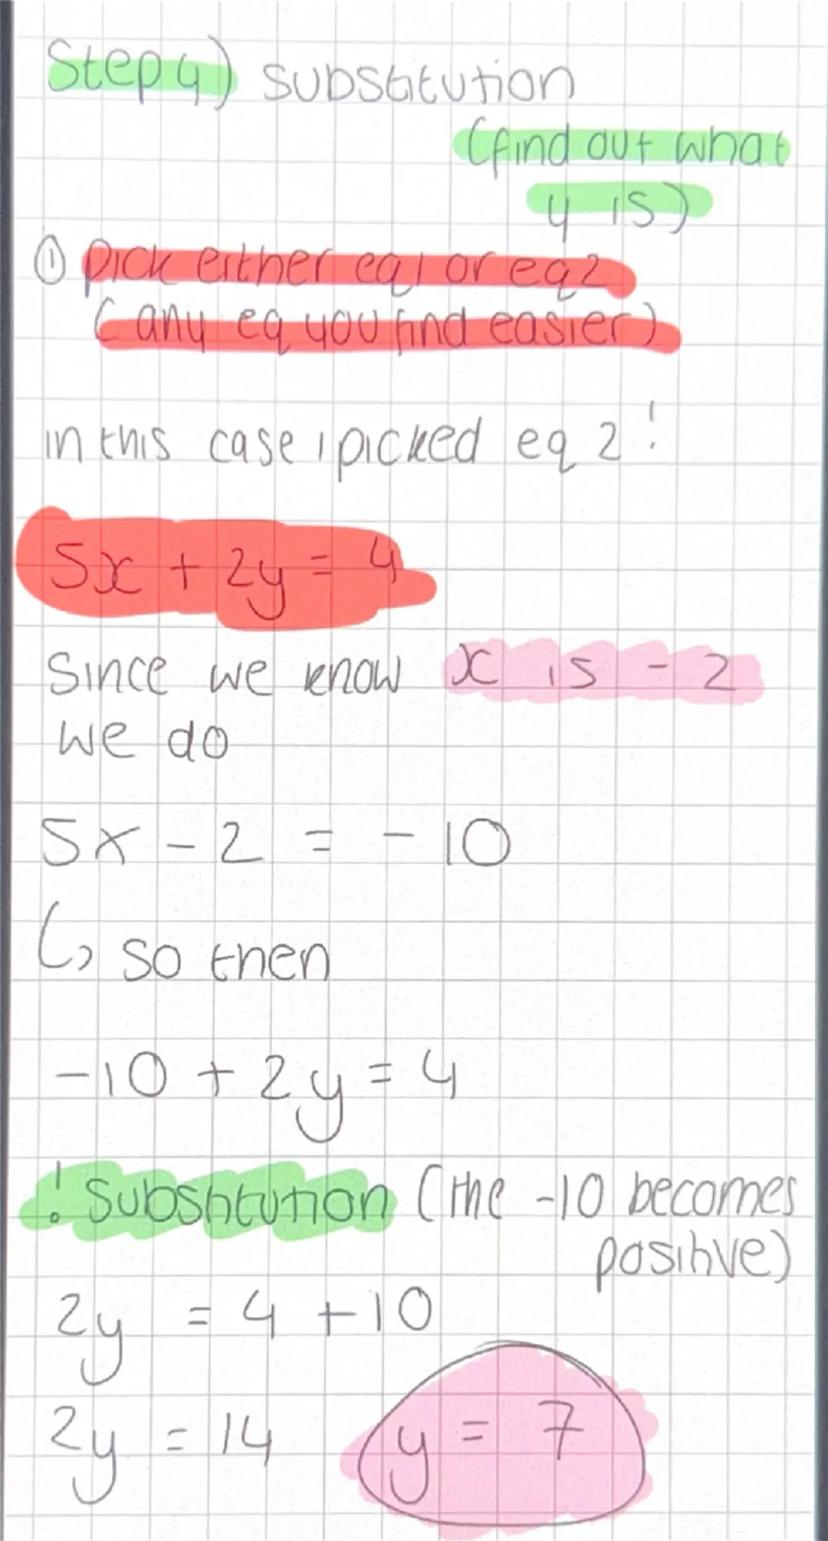 Step 4) substitution
(find out what
y is)
① pick either eq1 or eq2
(any eq you find easier)
in this case i picked eq 2!
5x + 2y = 4
Since we know x is -2
we do
5x - 2 = -10
↳ so then
-10 + 2y = 4
! Substitution (the -10 becomes
positive)
2y = 4 + 10
2y = 14 y = 7